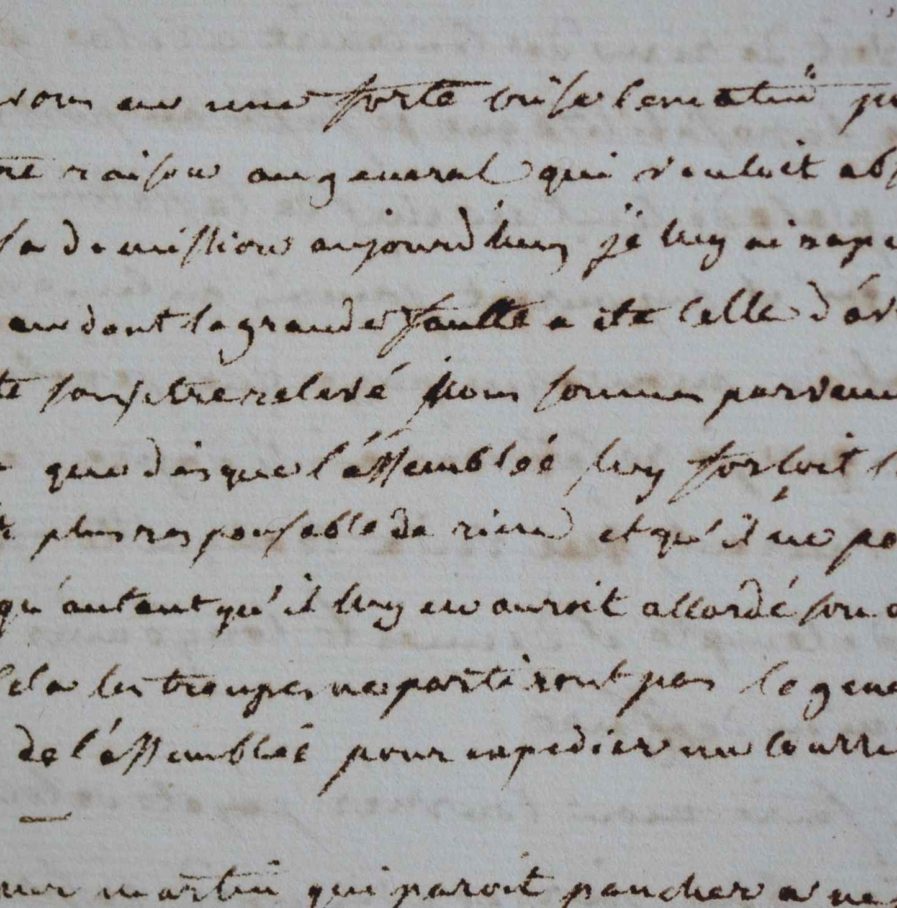 avons eu une forte crise le matin
raison au general qui vouloit abs
sa demission aujourd'huy je luy ai rape
dont la grande faulte a eté celle d'av
sans etre relevé nous sommes parvenu
que dès que l'assemblée luy forçoit l
plus responsable de rien et qu'il ne po
qu'autant qu'il luy en auroit accordé son
cela les troupes ne partiront pas le gene
de l'assemblée pour expedier un courri
martin qui paroit pancher a ne